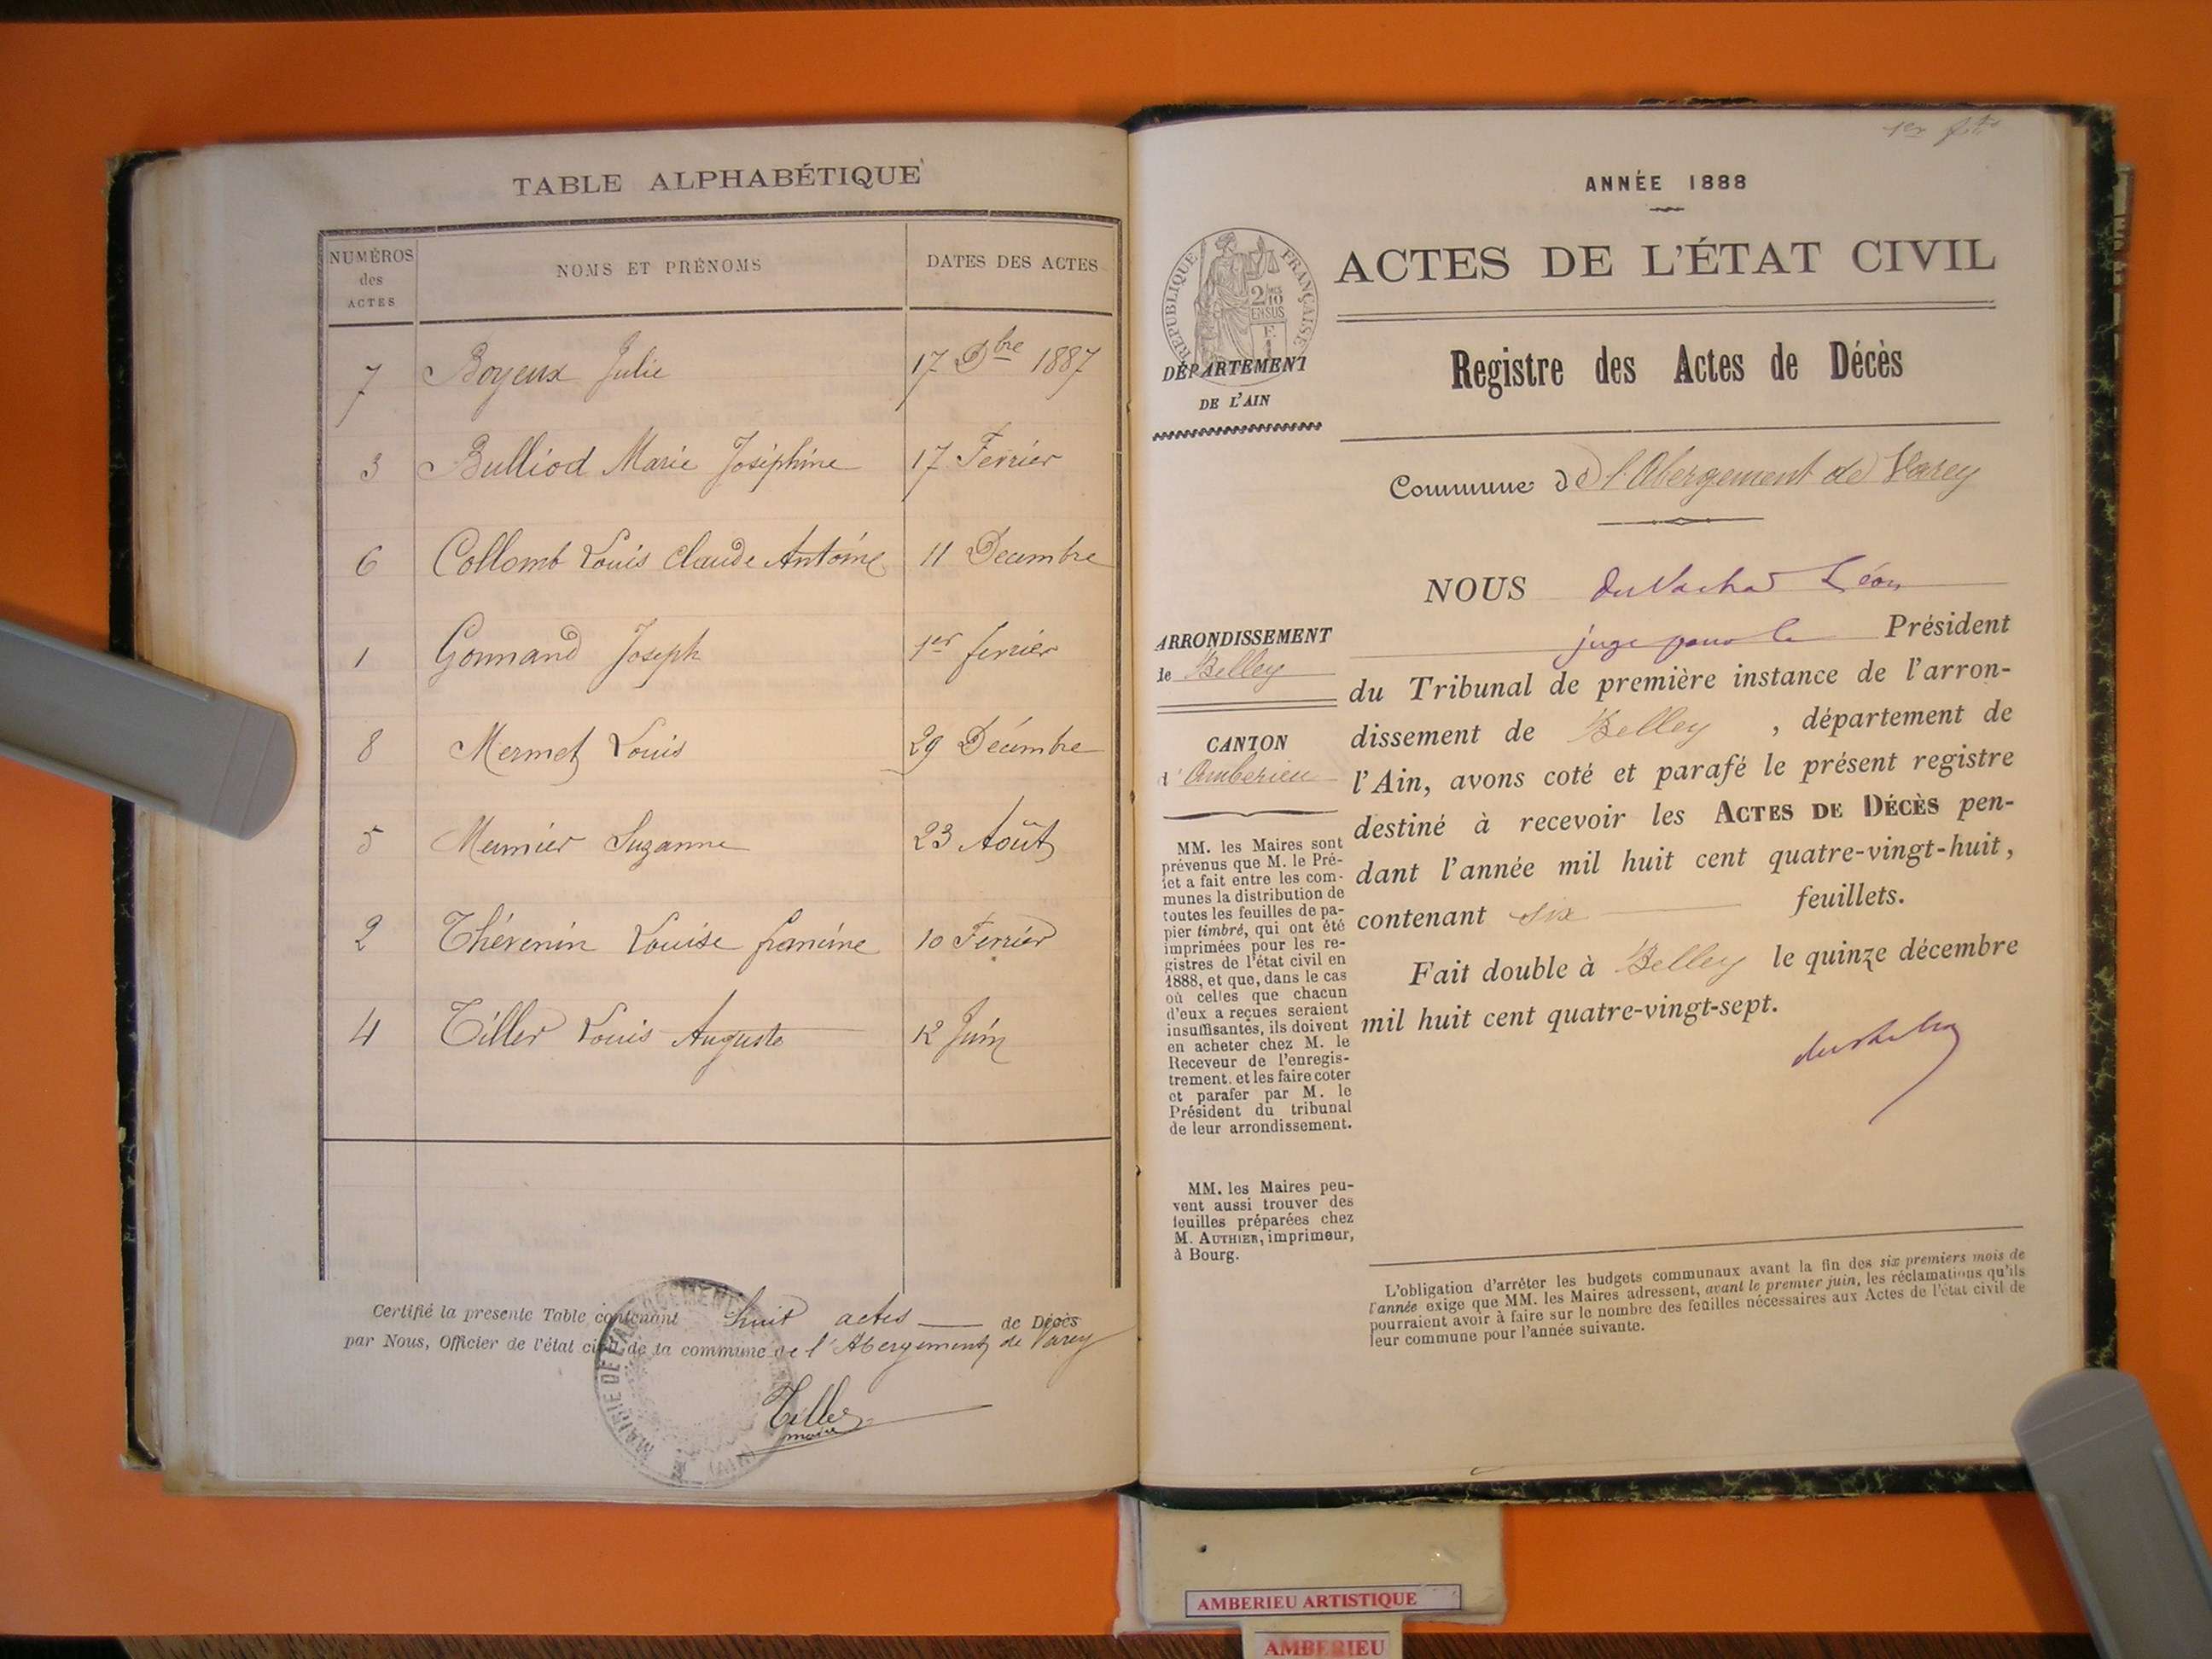 TABLE ALPHABÉTIQUE
NUMÉROS des ACTES
NOMS ET PRÉNOMS
DATES DES ACTES
7 Boyeux Julie 17 Dbre 1887
3 Bulliod Marie Joséphine 17 Fevrier
6 Collomb Louis Claude Antoine 11 Decembre
1 Gonnand Joseph 1er fevrier
8 Mermet Louis 29 Décembre
5 Meunier Suzanne 23 Août
2 Thévenin Louise francine 10 Fevrier
4 Tiller Louis Auguste 12 Juin
Certifié la presente Table contenant huit actes de Décès
par Nous, Officier de l'état civil de la commune de l'Abergement de Varey
Tiller
maire
MAIRIE DE L'ABERGEMENT
(AIN)
1er
ANNÉE 1888
REPUBLIQUE FRANÇAISE
2/10
EN SUS
ACTES DE L'ÉTAT CIVIL
DÉPARTEMENT
DE L'AIN
Registre des Actes de Décès
Commune de l'Abergement de Varey
ARRONDISSEMENT
de Belley
CANTON
d'Amberieu
MM. les Maires sont
prévenus que M. le Pré-
fet a fait entre les com-
munes la distribution de
toutes les feuilles de pa-
pier timbré, qui ont été
imprimées pour les re-
gistres de l'état civil en
1888, et que, dans le cas
où celles que chacun
d'eux a reçues seraient
insuffisantes, ils doivent
en acheter chez M. le
Receveur de l'enregis-
trement. et les faire coter
et parafer par M. le
Président du tribunal
de leur arrondissement.
MM. les Maires peu-
vent aussi trouver des
feuilles préparées chez
M. AUTHIER, imprimeur,
à Bourg.
NOUS Léon
juge pour le Président
du Tribunal de première instance de l'arron-
dissement de Belley, département de
l'Ain, avons coté et parafé le présent registre
destiné à recevoir les ACTES DE DÉCÈS pen-
dant l'année mil huit cent quatre-vingt-huit,
contenant six feuillets.
Fait double à Belley le quinze décembre
mil huit cent quatre-vingt-sept.
L'obligation d'arrêter les budgets communaux avant la fin des six premiers mois de
l'année exige que MM. les Maires adressent, avant le premier juin, les réclamations qu'ils
pourraient avoir à faire sur le nombre des feuilles nécessaires aux Actes de l'état civil de
leur commune pour l'année suivante.
AMBERIEU ARTISTIQUE
AMBERIEU